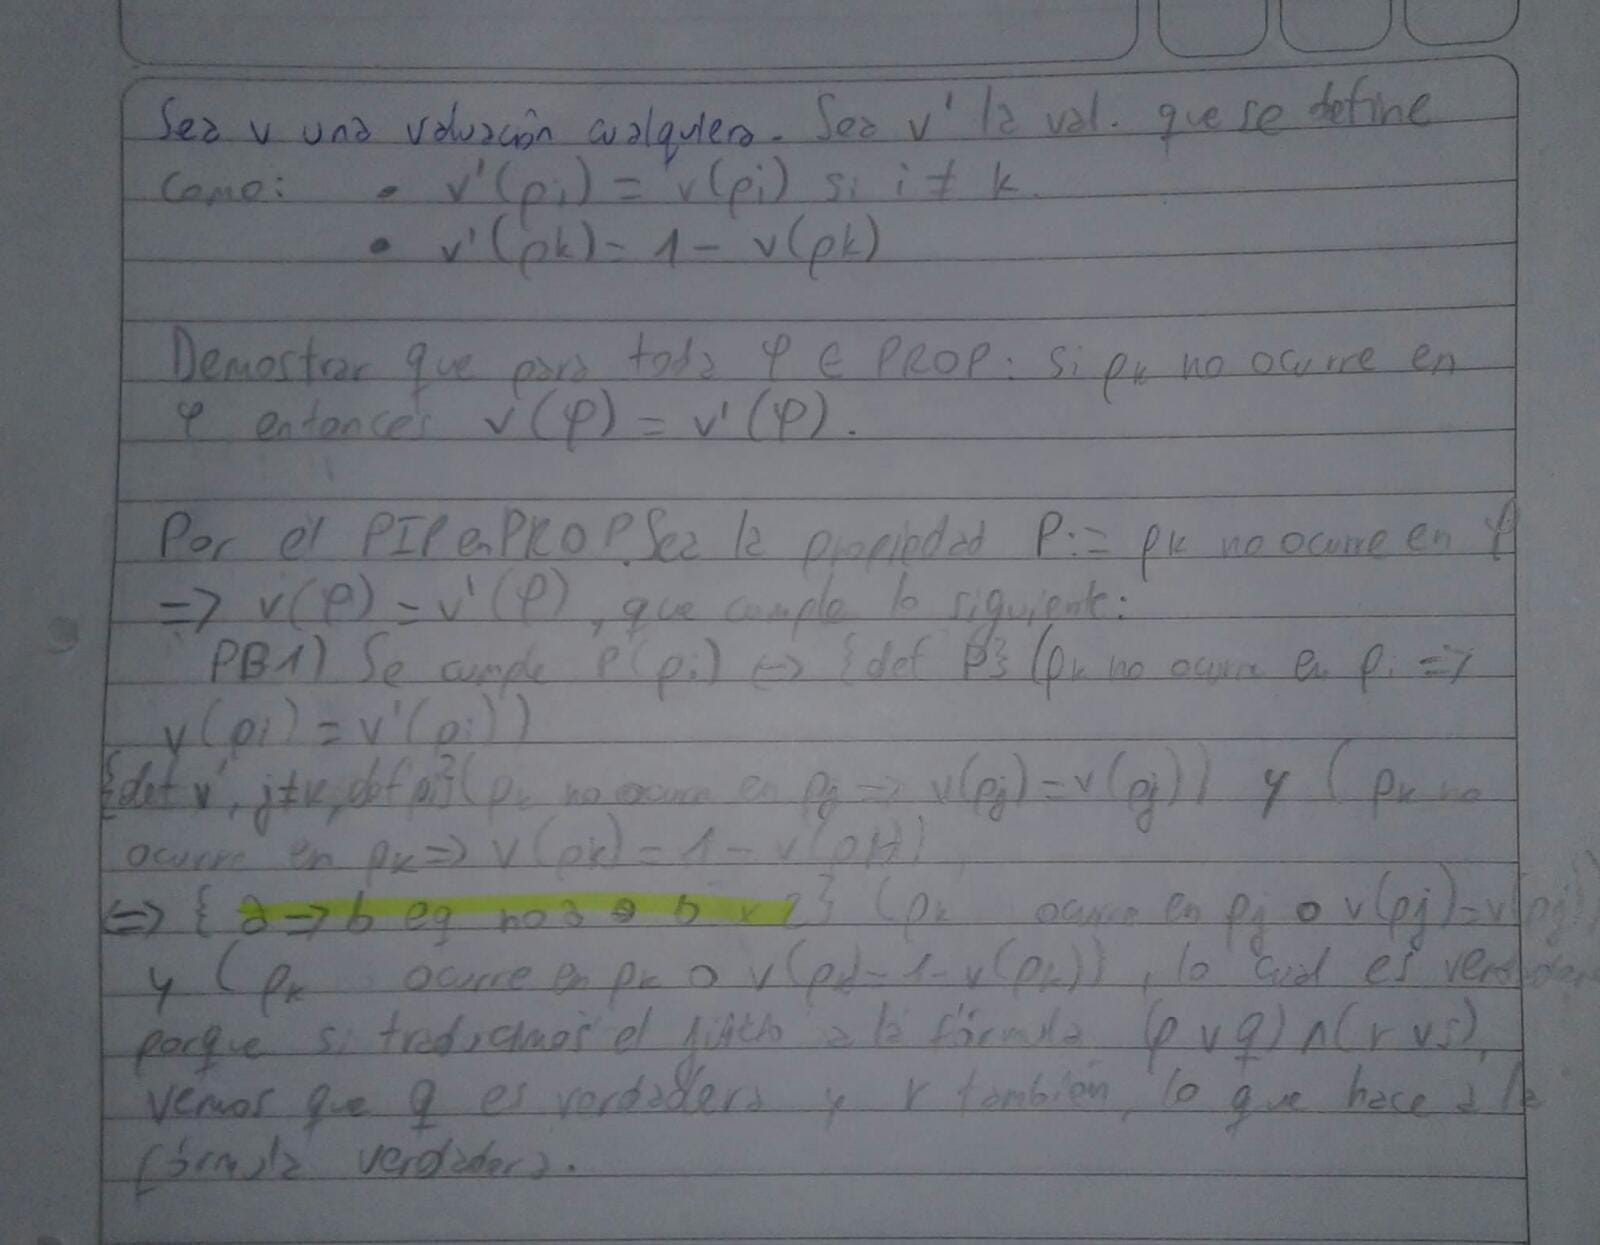 Sea v una valuación cualquiera. Sea v' la val. que se define
como: • v'(pi) = v(pi) si i ≠ k.
• v'(pk) = 1 - v(pk)
Demostrar que para toda φ ∈ PROP: si pk no ocurre en
φ entonces v(φ) = v'(φ).
Por el PIP en PROP. Sea la propiedad P:= pk no ocurre en φ
=> v(φ) = v'(φ), que cumple lo siguiente:
PB1) Se cumple P(pi) <-> {def P} (pk no ocurre en pi =>
v(pi) = v'(pi))
{def v', j≠k, def pi} (pk no ocurre en pj => v(pj) = v(pj)) y (pk no
ocurre en pk => v(pk) = 1 - v(pk))
<=> { a -> b eq no a o b } (pk ocurre en pj o v(pj) = v(pj)
y (pk ocurre en pk o v(pk) = 1 - v(pk)), lo cual es
porque si traducimos el a la fórmula (p ∨ q) ∧ (r ∨ s),
vemos que q es verdadera y r también, lo que hace a la
fórmula verdadera.